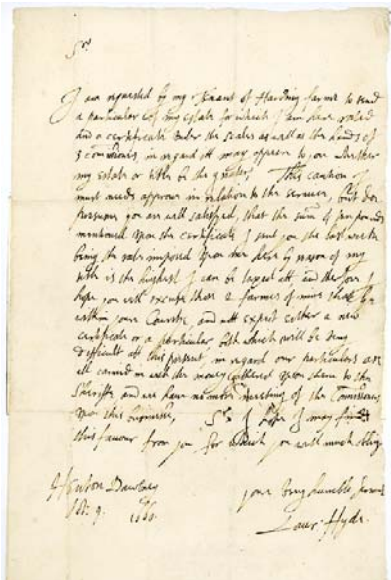 Sr
I am requested by my Tenant of Harding farme to send
a particular of my estate for which I am here rated
and a certificate under the seales as well as the hands of
3 comissionrs in regard itt may appear to you whether
my estate or title be the greater. This caution I
must needs approve in relation to the service, but doe
presume you are well satisfied, that the sum of ten pounds
mentioned upon the certificate I sent you the last weeke
being the rate imposed upon me here by reason of my
title is the highest I can be taxed att, and therefore I
hope you will excuse those 2 farmes of mine that lye
within your County, and nott expect either a new
certificate or a particular both which will be very
difficult att this present in regard our particulars are
all carried in with the money gathered upon them to the
Sheriffe and we have no more meeting of the Comissionrs
upon this businesse, Sr I hope I may find
this favour from you for which you will much oblige
your very humble servant
Laur: Hyde.
Hinton Dawbney
9. 1660.